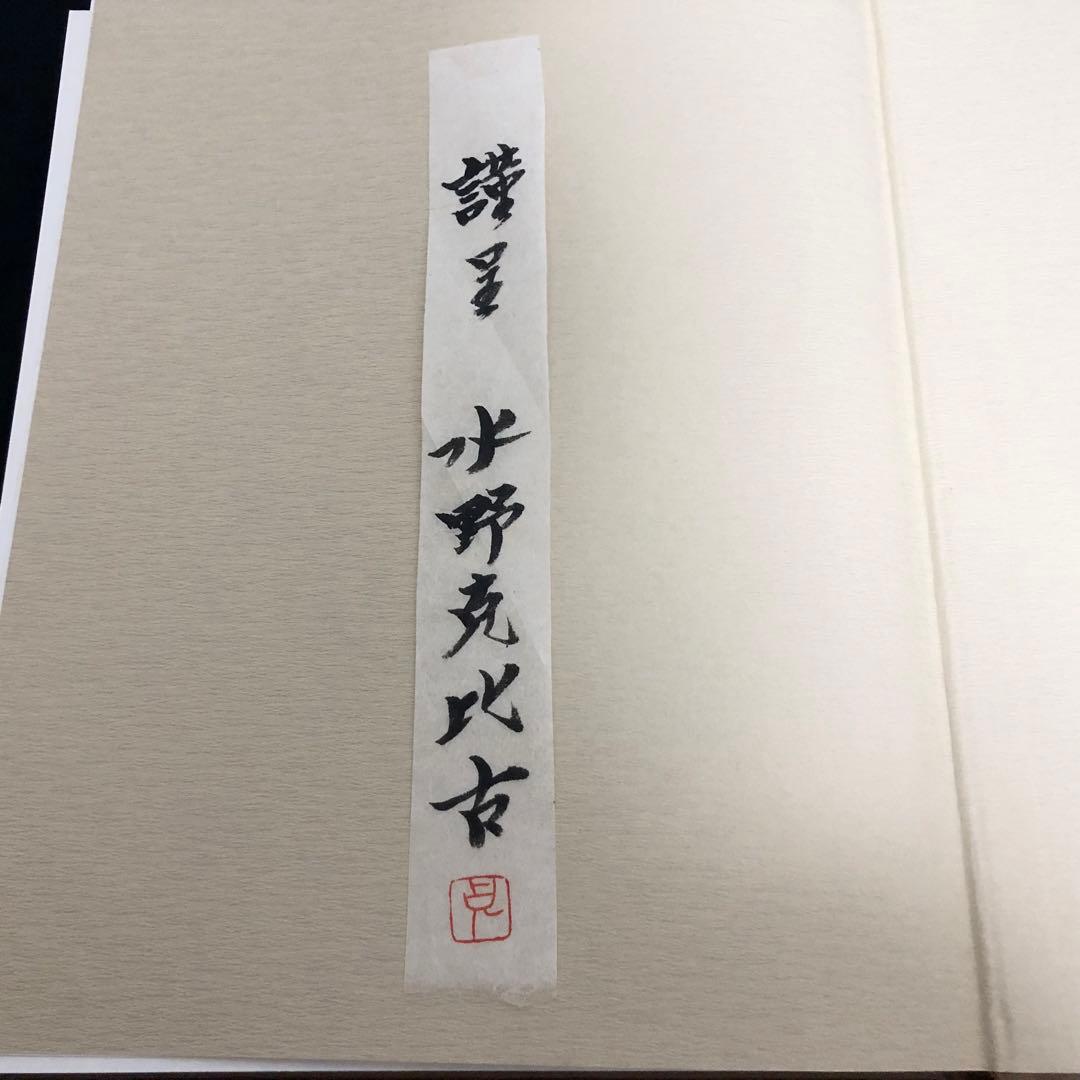 謹呈 水野克比古